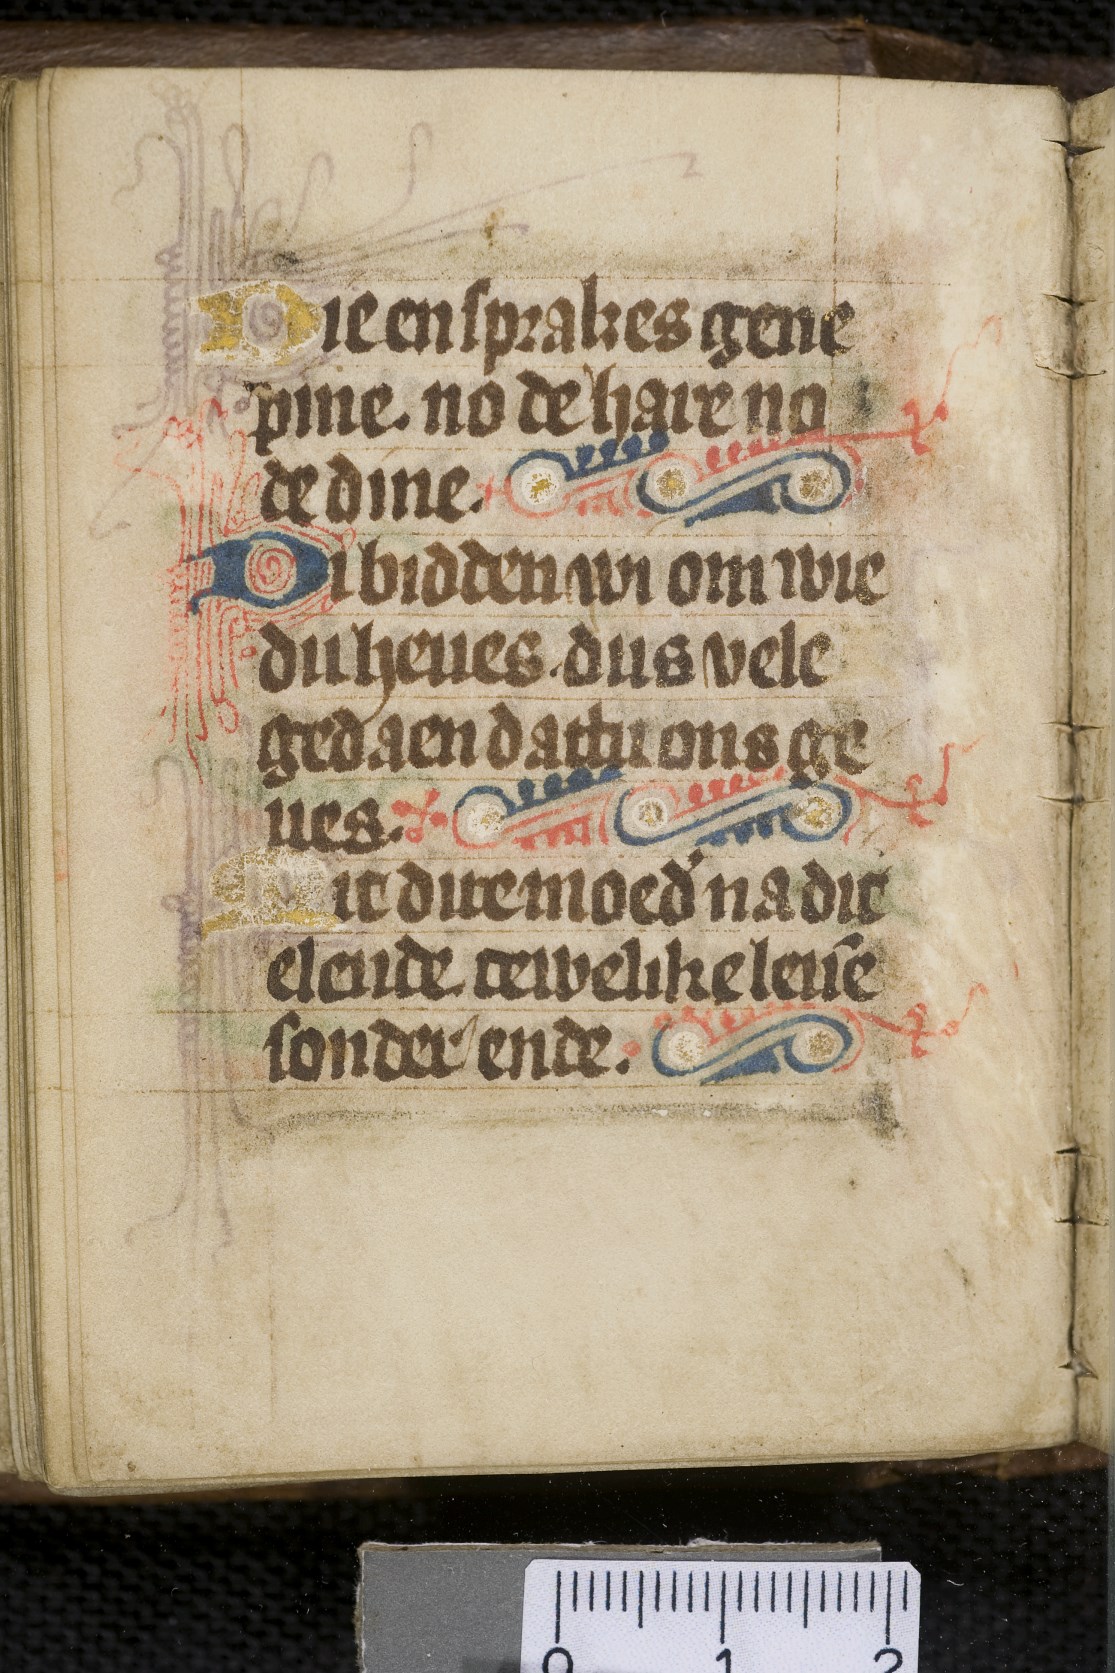 Die en sprakes gene
pine. no de haire no
de dine.
Di bidden wi om wie
du heues. dus vele
gedaen dattu ons ge
ues.
Mit dire moed' na dit
elende. ewelike leuē
sonder ende.
0 1 2